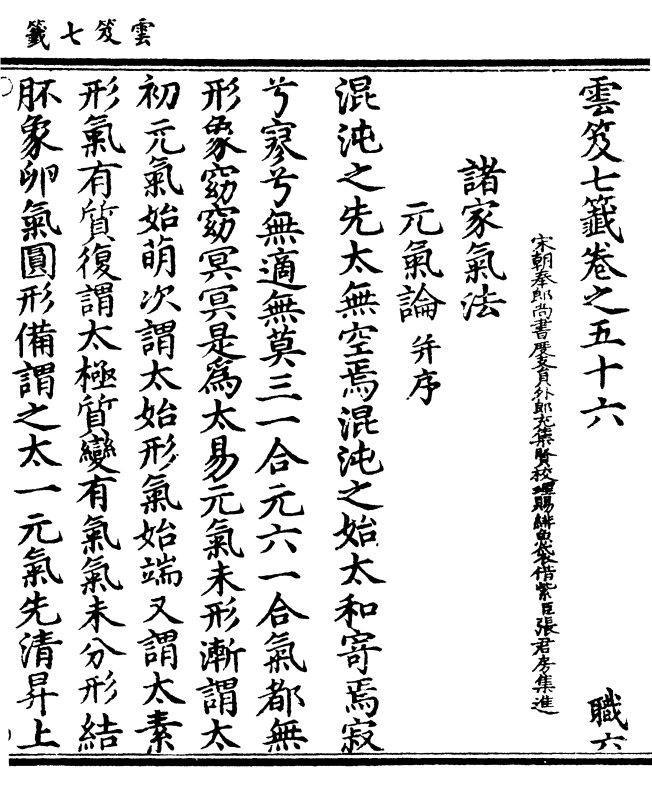 雲笈七籤
雲笈七籤卷之五十六
職六
宋朝奉郎尚書度支員外郎充集賢校理賜緋魚袋借紫臣張君房集進
諸家氣法
元氣論并序
混沌之先太無空焉混沌之始太和寄焉寂
兮寥兮無適無莫三一合元六一合氣都無
形象窈窈冥冥是爲太易元氣未形漸謂太
初元氣始萌次謂太始形氣始端又謂太素
形氣有質復謂太極質變有氣氣未分形結
胚象卵氣圓形備謂之太一元氣先清昇上